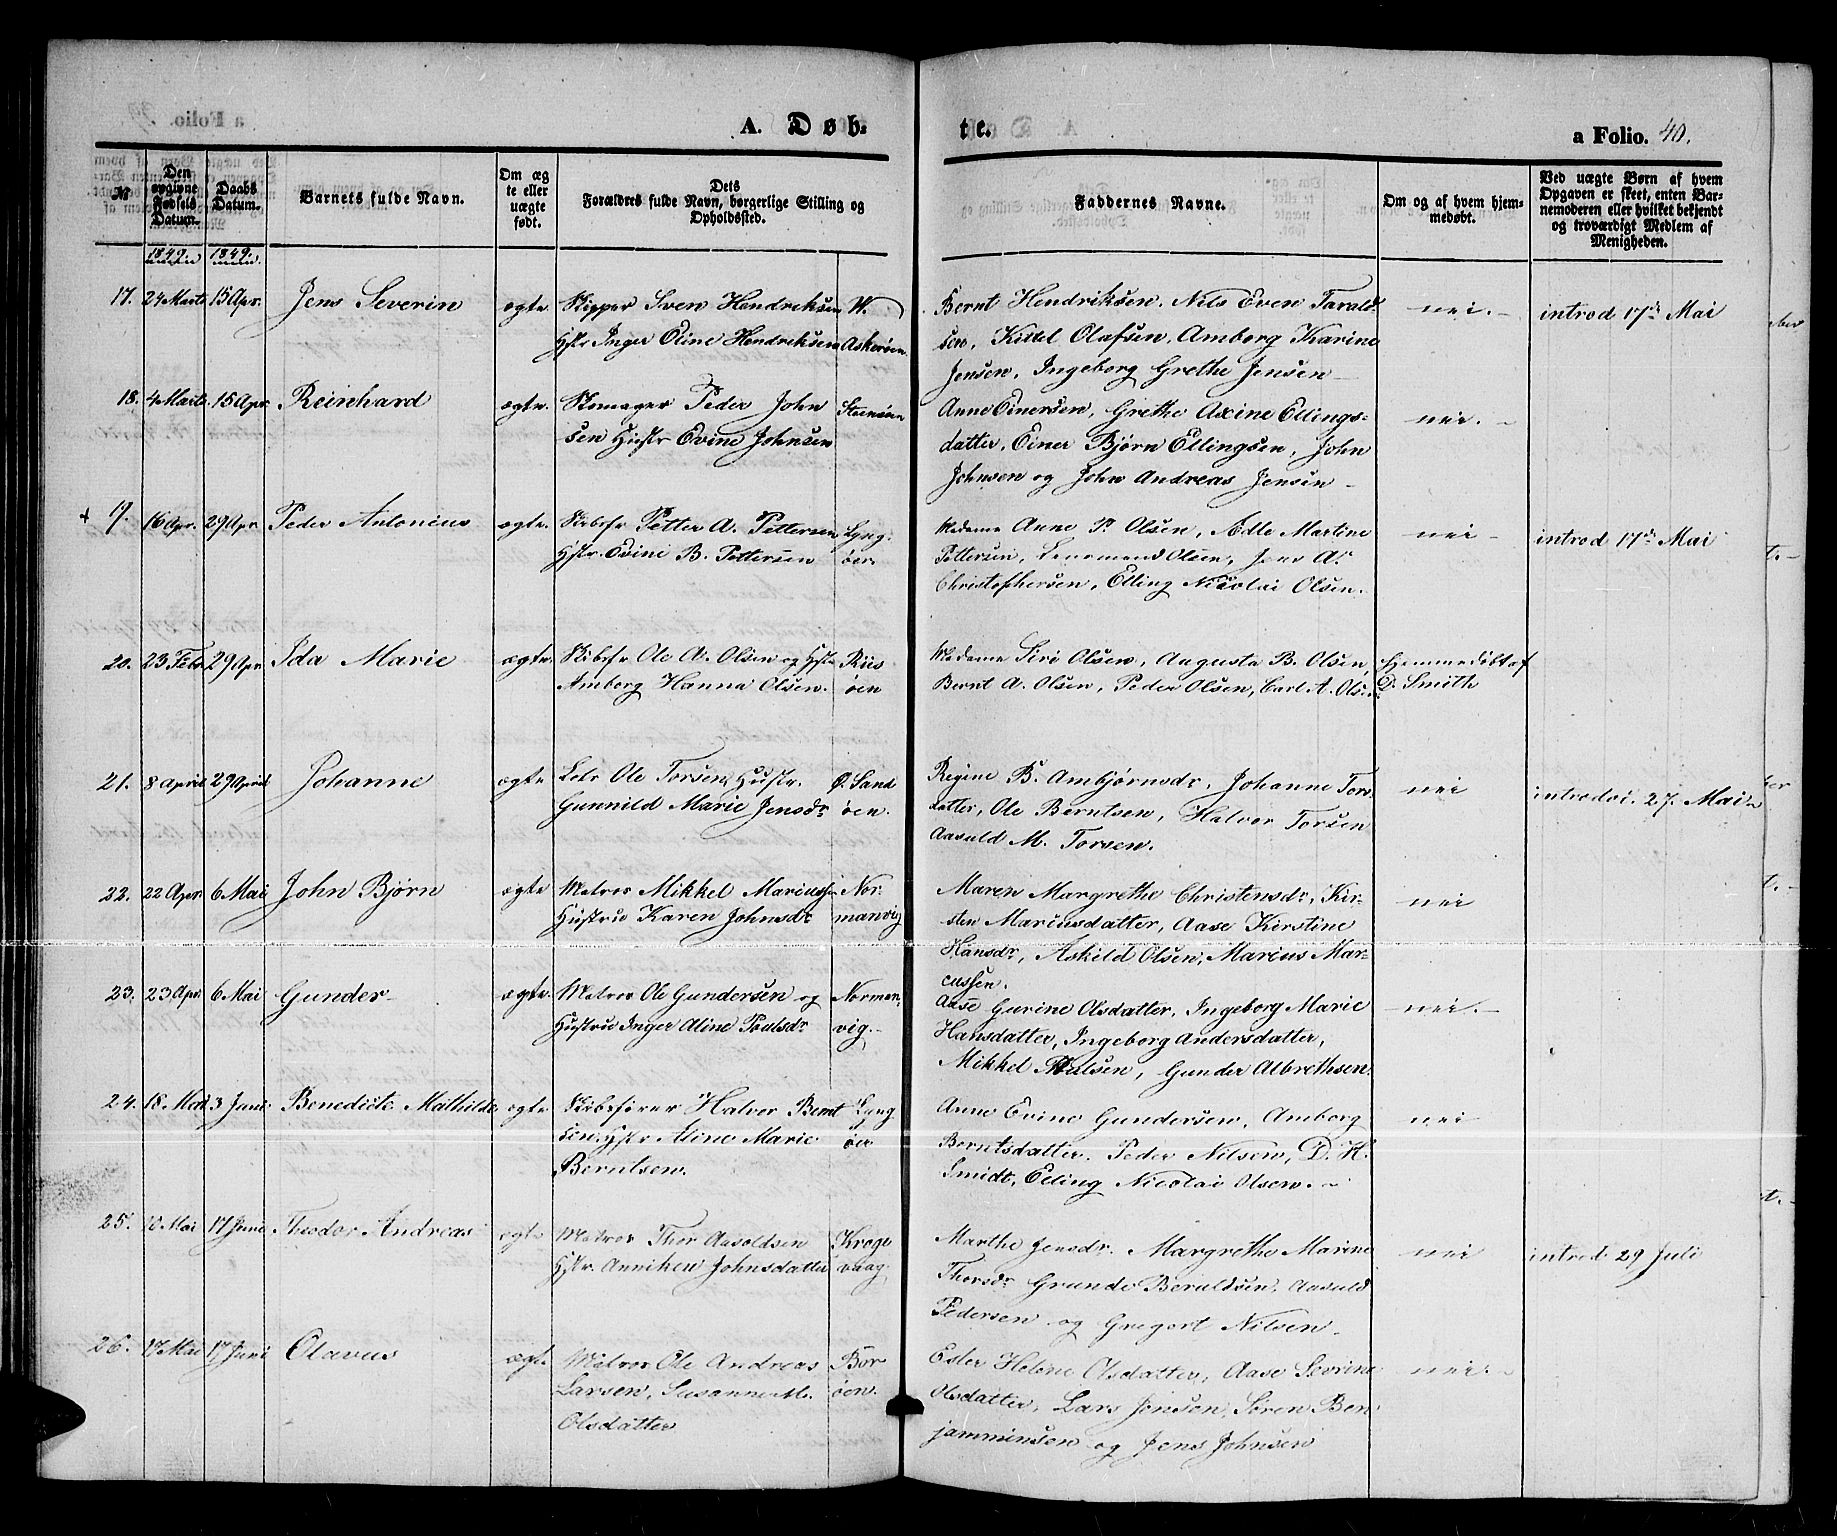 A. Døb-
te.
a Folio. 40.
№
Den opgivne Fødsels Datum.
Daabs Datum.
Barnets fulde Navn.
Om ægte eller uægte født.
Dets Forældres fulde Navn, borgerlige Stilling og Opholdssted.
Faddernes Navne.
Om og af hvem hjemmedøbt.
Ved uægte Børn af hvem Opgaven er skeet, enten Barnemoderen eller hvilket bekjendt og troværdigt Medlem af Menigheden.
1849. 1849.
17. 24 Marts 15 Apr. Jens Severin ægte. Skipper Sven Hendriksen W. Bernt Hendriksen, Nils Even Tarald- nei.- introd 17de Mai
Hstr Inger Eline Hendriksen Askerøen sen, Kittel Olafsen, Amborg Karine
Jensen, Ingeborg Grethe Jensen
18. 4 Marts 15 Apr Reinhard ægte. Skomager Peder John Steensøen Anne Einersen, Grethe Axine Ellings- nei.-
sen Hustr Evine Johnsen datter, Einer Bjørn Ellingsen, John
Johnsen og John Andreas Jensen
+ 19. 16 Apr. 29 Apr. Peder Antonius ægte. Skibsfr Petter A. Pettersen Lyng- Madame Anne P. Olsen, Adle Martine nei - introd 17de Mai
Hstr. Evine B. Pettersen øer Pettersen, Olsen, Jens A.
Christophersen, Elling Nicolai Olsen.
20. 23 Febr 29 Apr. Ida Marie ægte. Skibsfr Ole A. Olsen og Hstr Riis Madame Siri Olsen, Augusta B. Olsen, Hjemmedøbt af
Amborg Hanna Olsen. øen Bernt A. Olsen, Peder Olsen, Carl A. Olsen D. Smith
21. 8 April 29 April Johanne ægte Ole Torsen, Hustr. Ø. Sand Regine B. Ambjørnsdr, Johanne Tors- nei introd. 27. Mai
Gunnild Marie Jensdr øen. datter, Ole Berntsen, Halvor Torsen
Aasuld M. Torsen.
22. 22 Apr. 6 Mai John Bjørn ægte Matros Mikkel Mariussen Nor- Maren Margrethe Christensdr, Kir- nei
Hustru Karen Johnsdr manvig sten Mariusdatter, Aase Kirstine
Hansdr, Askild Olsen, Marius Mar-
cussen.
23. 23 Apr. 6 Mai Gunder ægte Matros Ole Gundersen og Norman- Aase Gurine Olsdatter, Ingeborg Marie nei.-
Hustru Inger Aline Poulsdr vig. Hansdatter, Ingeborg Andersdatter,
Mikkel Poulsen, Gunder Albrethsen.
24. 18 Mai 3 Juni Benedicte Mathilde ægte Skibsfører Halvor Bernt Lyng Anne Evine Gundersen, Amborg nei
sen, Hstr Aline Marie øer Berntsdatter, Peder Nilsen, D. H.
Berntsen. Smidt, Elling Nicolai Olsen.
25. 10 Mai 17 Juni Theodor Andreas ægte Matros Thor Aasoldsen Kroge Marthe Jensdr. Margrethe Marine nei introd. 29 Juli
Hstr. Anniken Johnsdatter vaag Thorsdr Grunde Beruldsen, Aasuld
Pedersen og Gregort Nilsen.
26. 17 Mai 17 Juni Olavus ægte Matros Ole Andreas Bor Ester Helene Olsdatter, Aase Sevrine nei.-
Larsen, Susanne M. øen. Olsdatter, Lars Jensen, Søren Ben-
Olsdatter jaminsen og Jens Johnsen